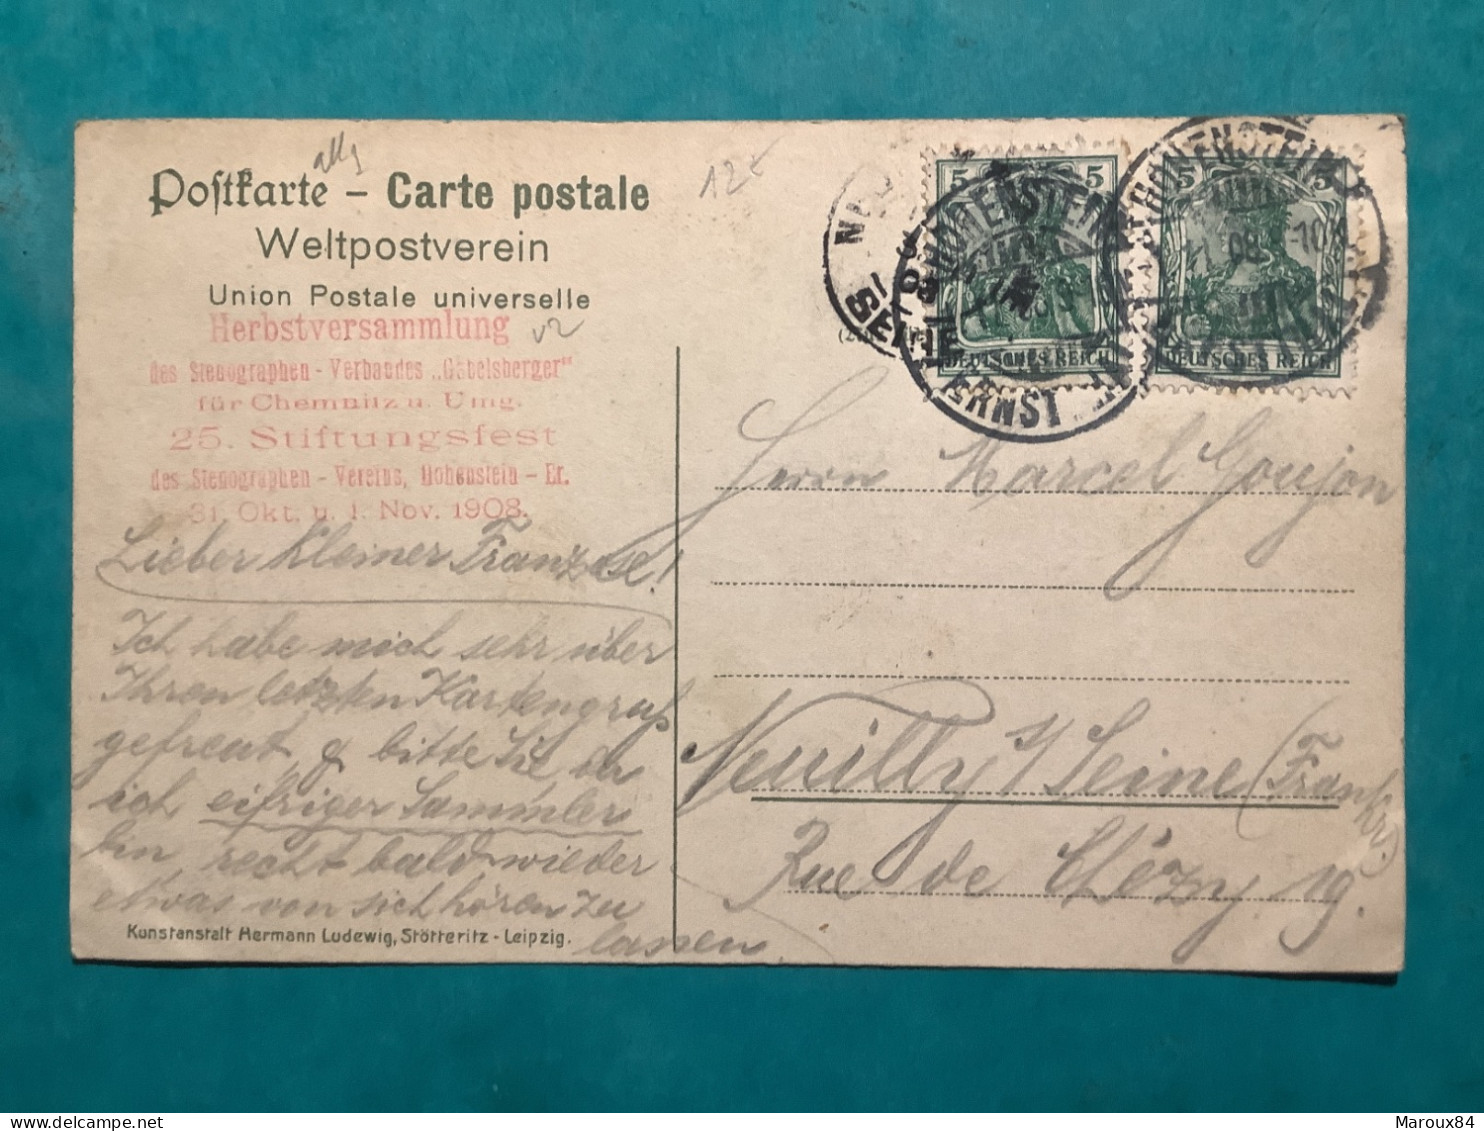 Postkarte – Carte postale
Weltpostverein
Union Postale universelle
Herbstversammlung
des Stenographen - Verbandes „Gabelsberger"
für Chemnitz u. Umg.
25. Stiftungsfest
des Stenographen - Vereins, Hohenstein - Er.
31. Okt. u. 1. Nov. 1908.
Lieber kleiner Franzose!
Ich habe mich sehr über
Ihren letzten Kartengruß
gefreut & bitte Sie da
ich eifriger Sammler
bin recht bald wieder
etwas von sich hören zu
lassen
Kunstanstalt Hermann Ludewig, Stötteritz - Leipzig.
12€
5 5
DEUTSCHES REICH
5 5
DEUTSCHES REICH
HOHENSTEIN
ERNST
HOHENSTEIN
SEINE
Herrn Marcel Goujon
Neuilly s/ Seine (Frankr.)
Rue de Chézy 19.
Maroux84